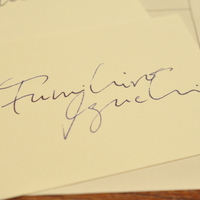 Fumihiro
Iguchi